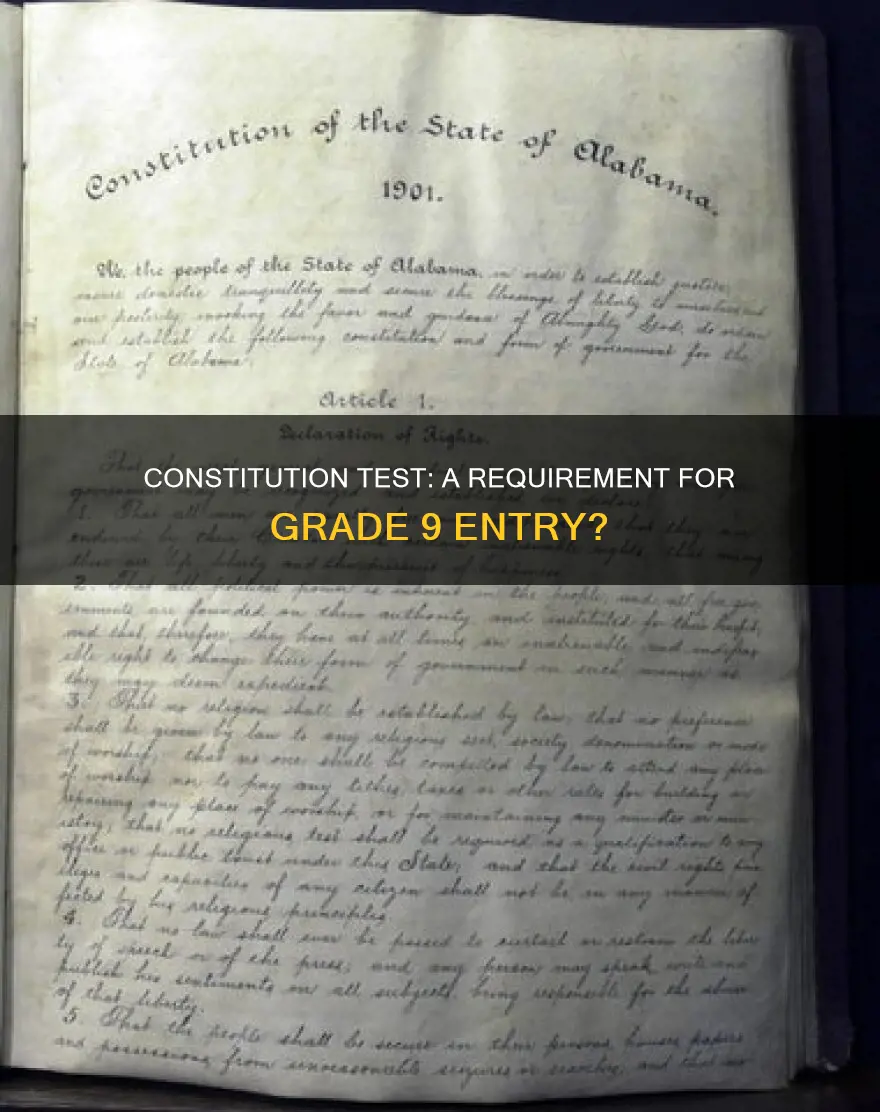 Constitution of the State of Alabama.
1901.
We, the people of the State of Alabama, in order to establish justice,
insure domestic tranquillity and secure the blessings of liberty to ourselves and
our posterity, invoking the favor and guidance of Almighty God, do ordain
and establish the following constitution and form of government for the
State of Alabama.
Article 1.
Declaration of Rights.
That
CONSTITUTION TEST: A REQUIREMENT FOR
1. That all men
GRADE 9 ENTRY?
endowed by their that among
these are life, liberty and the pursuit of happiness.
2. That all political power is inherent in the people, and all free gov
ernments are founded on their authority, and instituted for their benefit;
and that, therefore, they have at all times an inalienable and indefeas
ible right to change their form of government in such manner as
they may deem expedient.
3. That no religion shall be established by law; that no preference
shall be given by law to any religious sect, society, denomination or mode
of worship; that no one shall be compelled by law to attend any place
of worship; nor to pay any tithes, taxes or other rate for building or
repairing any place of worship, or for maintaining any minister or min
istry; that no religious test shall be required as a qualification to any
office or public trust under this State; and that the civil rights, priv
ileges and capacities of any citizen shall not be in any manner af
fected by his religious principles.
4. That no law shall ever be passed to curtail or restrain the liber
ty of speech or of the press; and any person may speak, write and
publish his sentiments on all subjects, being responsible for the abuse
of that liberty.
5. That the people shall be secure in their persons, houses, papers
and possessions from unreasonable seizures or searches, and that no